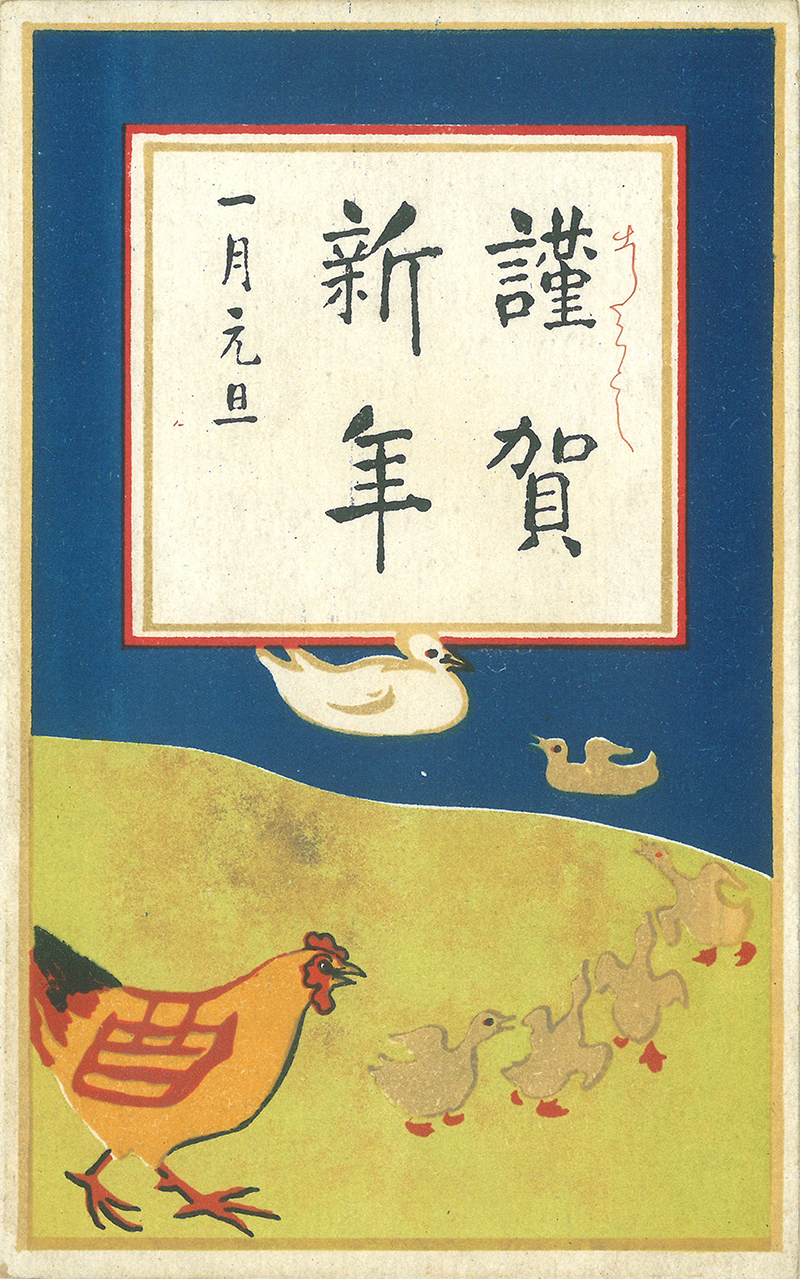 謹賀
新年
一月元旦